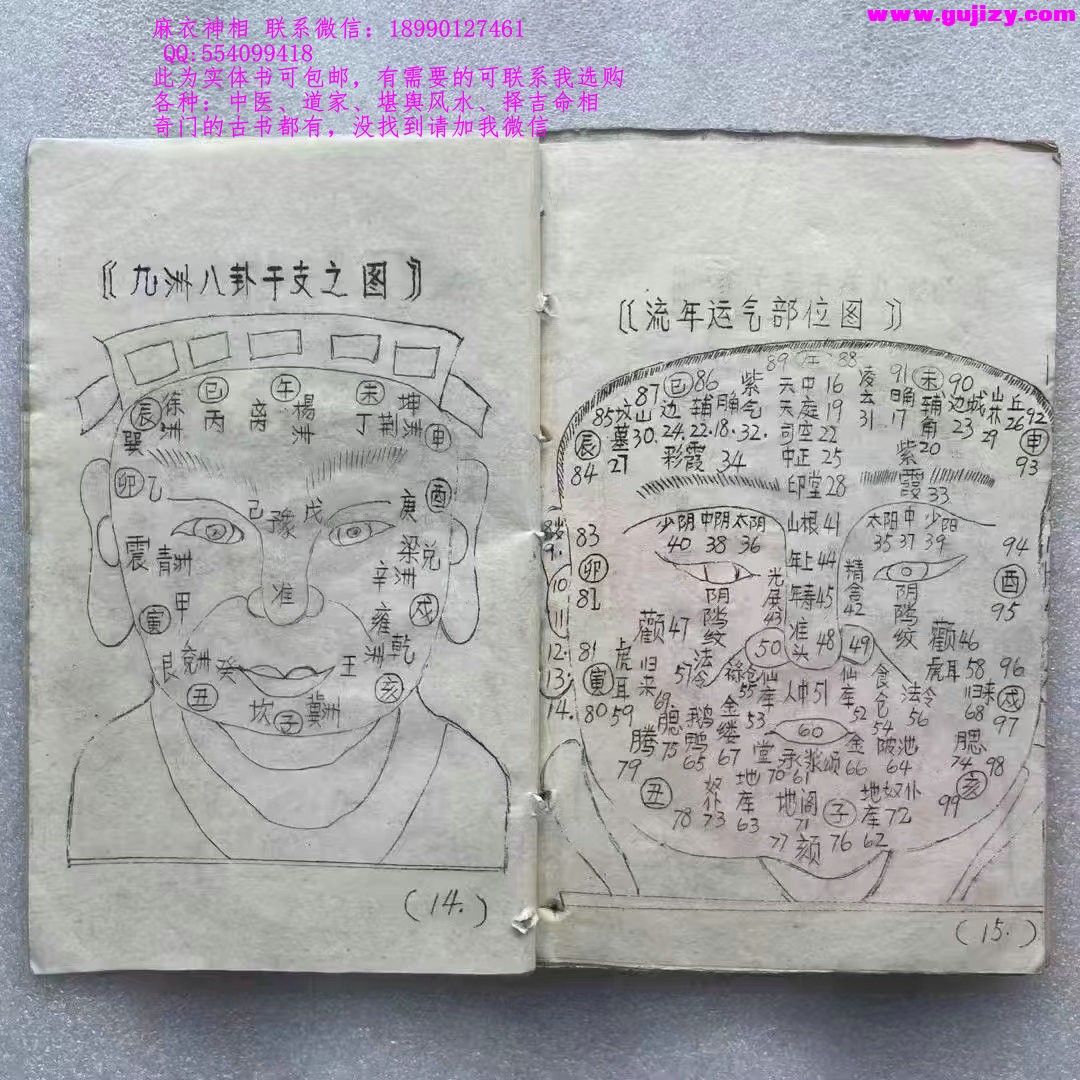 麻衣神相 联系微信：18990127461
QQ:554099418
此为实体书可包邮，有需要的可联系我选购
各种：中医、道家、堪舆风水、择吉命相
奇门的古书都有，没找到请加我微信
www.gujizy.com
〖九洲八卦干支之图〗
辰 徐洲 巳 丙 午 离 楊洲 未 丁 荆洲 坤 申
巽
卯 乙 己 豫 戊 庚 酉
震 青洲 辛 梁洲 兑
甲 寅 准 雍洲 乾 戌
艮 兖洲 癸 王 亥
丑 坎 子 冀洲
(14.)
〖流年运气部位图〗
89 午 88
87 巳 86 紫气 天中 16 凌云 31 91 未 90
85 坟墓 27 山 30. 边 24. 辅 22. 角 18. 32. 天庭 19 日角 17 辅角 20 边城 23 山林 29 丘 26 92
辰 84 司空 22 申 93
彩霞 34 中正 25 紫霞 33
印堂 28
少阴 40 中阴 38 太阴 36 山根 41 太阳 35 中 37 少阳 39
83 卯 82 年上 44 94 酉 95
阴骘纹 光殿 43 年寿 45 精舍 42 阴骘纹
9. 10 11 12. 13. 14.
颧 47 50 准头 48 49 颧 46
81 寅 80 虎耳 59 归来 69 法令 57 禄仓 55 仙库 53 人中 51 仙库 52 食仓 54 法令 56 虎耳 58 归来 68 96 戌 97
腾 79 腮 75 鹅鸭 65 金缕 67 60 金 66 陂池 64 腮 74 98
丑 78 奴仆 73 地库 63 堂 70 承浆 61 颂 地库 62 奴仆 72 亥 99
地阁 71 子
77 颏 76
(15.)